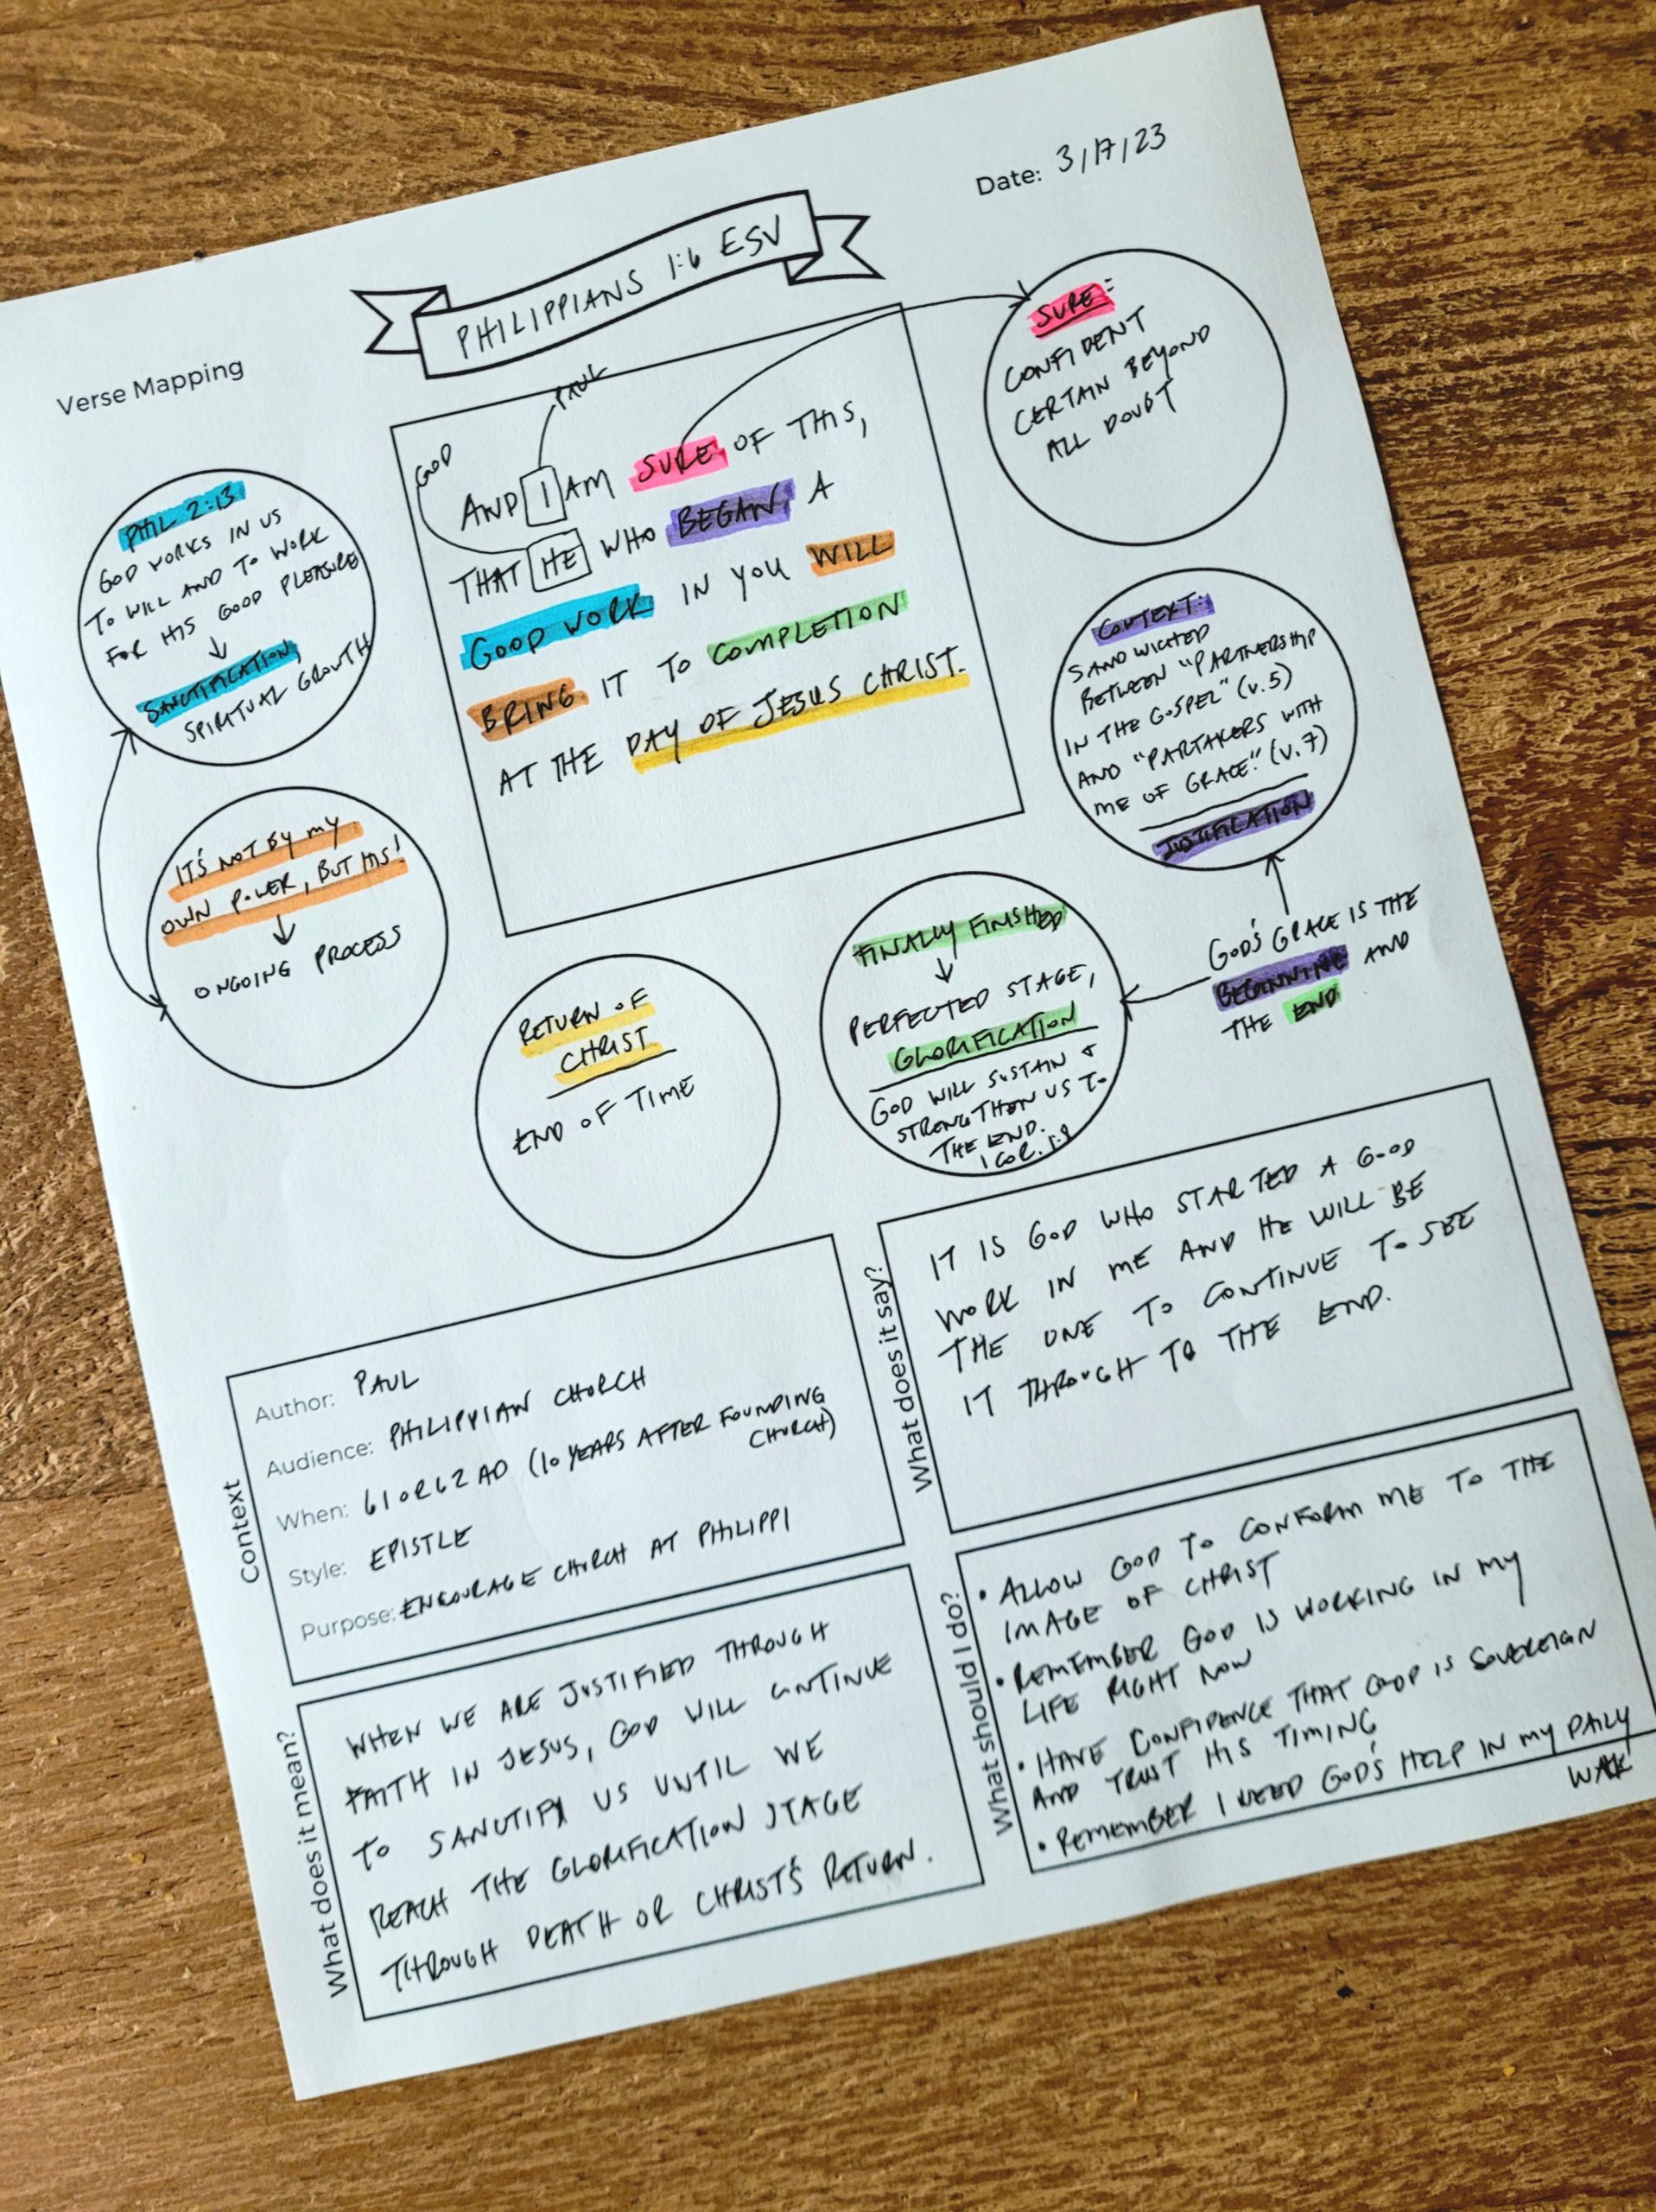 Date: 3/17/23
PHILIPPIANS 1:6 ESV
Verse Mapping
PAUL
GOD
AND I AM SURE OF THIS,
THAT HE WHO BEGAN A
GOOD WORK IN YOU WILL
BRING IT TO COMPLETION
AT THE DAY OF JESUS CHRIST.
SURE:
CONFIDENT
CERTAIN BEYOND
ALL DOUBT
PHIL 2:13
GOD WORKS IN US
TO WILL AND TO WORK
FOR HIS GOOD PLEASURE
↓
SANCTIFICATION,
SPIRITUAL GROWTH
CONTEXT:
SANDWICHED
BETWEEN "PARTNERSHIP
IN THE GOSPEL" (v.5)
AND "PARTAKERS WITH
ME OF GRACE." (v.7)
JUSTIFICATION
IT'S NOT BY MY
OWN POWER, BUT HIS!
↓
ONGOING PROCESS
RETURN OF
CHRIST
END OF TIME
FINALLY FINISHED
↓
PERFECTED STAGE,
GLORIFICATION
GOD WILL SUSTAIN &
STRENGTHEN US TO
THE END.
1 COR. 1:8
GOD'S GRACE IS THE
BEGINNING AND
THE END
Context
Author: PAUL
Audience: PHILIPPIAN CHURCH
When: 61 OR 62 AD (10 YEARS AFTER FOUNDING
CHURCH)
Style: EPISTLE
Purpose: ENCOURAGE CHURCH AT PHILIPPI
What does it say?
IT IS GOD WHO STARTED A GOOD
WORK IN ME AND HE WILL BE
THE ONE TO CONTINUE TO SEE
IT THROUGH TO THE END.
What does it mean?
WHEN WE ARE JUSTIFIED THROUGH
FAITH IN JESUS, GOD WILL CONTINUE
TO SANCTIFY US UNTIL WE
REACH THE GLORIFICATION STAGE
THROUGH DEATH OR CHRIST'S RETURN.
What should I do?
• ALLOW GOD TO CONFORM ME TO THE
IMAGE OF CHRIST
• REMEMBER GOD IS WORKING IN MY
LIFE RIGHT NOW
• HAVE CONFIDENCE THAT GOD IS SOVEREIGN
AND TRUST HIS TIMING
• REMEMBER I NEED GOD'S HELP IN MY DAILY
WALK